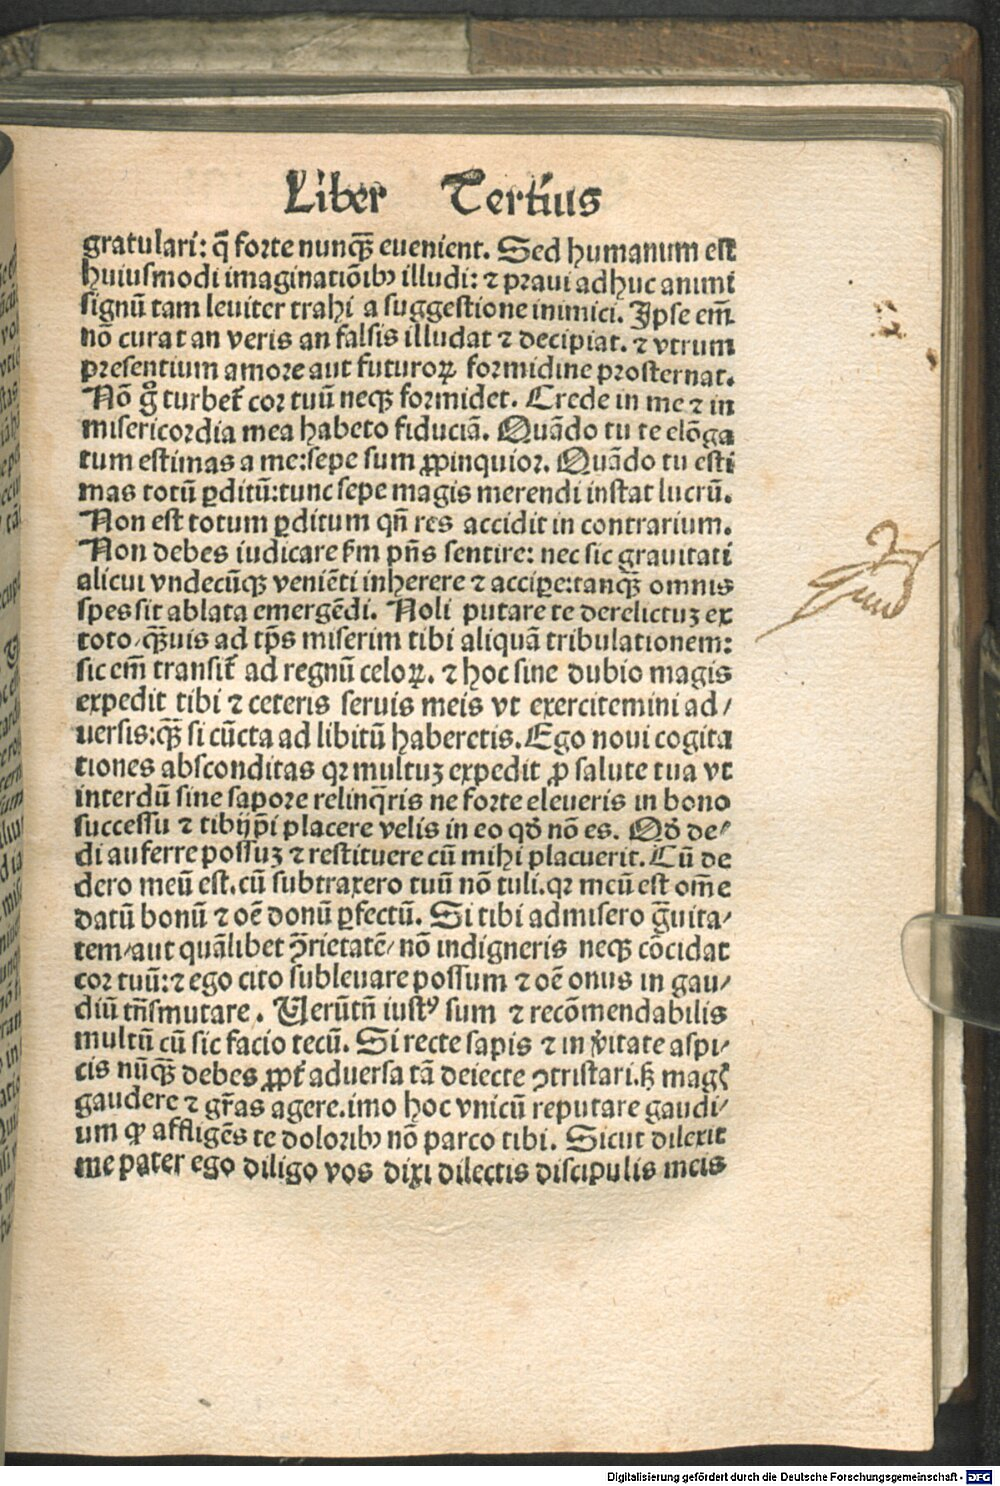 Liber Tertius
gratulari: q̄ forte nunqȝ̄ euenient. Sed humanum est
huiusmodi imaginatiōibꝰ illudi: ⁊ praui adhuc animi
signū tam leuiter trahi a suggestione inimici. Ipse em̄
nō curat an veris an falsis illudat ⁊ decipiat. ⁊ vtrum
presentium amore aut futuroꝝ formidine prosternat.
Nō gͦ turbet᷑ cor tuū neqȝ formidet. Crede in me ⁊ in
misericordia mea habeto fiduciā. Quādo tu te elōga
tum estimas a me:sepe sum ꝓpinquior. Quādo tu esti
mas totū ꝑditū:tunc sepe magis merendi instat lucrū.
Non est totum ꝑditum qn̄ res accidit in contrarium.
Non debes iudicare ẜm pn̄s sentire: nec sic grauitati
alicui vndecūqȝ veniēti inherere ⁊ acciꝑe:tanqȝ̄ omnis
spes sit ablata emergēdi. Noli putare te derelictuȝ ex
toto/qȝ̄uis ad tp̄s miserim tibi aliquā tribulationem:
sic em̄ transit᷑ ad regnū celoꝝ. ⁊ hoc sine dubio magis
expedit tibi ⁊ ceteris seruis meis vt exercitemini ad/
uersis:qȝ̄ si cūcta ad libitū haberetis. Ego noui cogita
tiones absconditas qꝛ multuȝ expedit ꝓ salute tua vt
interdū sine sapore relinq̄ris ne forte eleueris in bono
successu ⁊ tibijp̄i placere velis in eo qd̄ nō es. Qd̄ de/
di auferre possuȝ ⁊ restituere cū mihi placuerit. Cū de
dero meū est.cū subtraxero tuū nō tuli.qꝛ meū est om̄e
datū bonū ⁊ oē donū ꝑfectū. Si tibi admisero g̃uita/
tem/aut quālibet ꝯ̄rietatē/nō indigneris neqȝ cōcidat
cor tuū:⁊ ego cito subleuare possum ⁊ oē onus in gau/
diū tn̄smutare. Uerūtn̄ iustꝰ sum ⁊ recōmendabilis
multū cū sic facio tecū. Si recte sapis ⁊ in v̓itate aspi/
cis nūqȝ̄ debes ꝓpt᷑ aduersa tā deiecte ꝯtristari.ß magꝭ
gaudere ⁊ gr̄as agere.imo hoc vnicū reputare gaudi/
um ꝙ affligēs te doloribꝰ nō parco tibi. Sicut dilexit
me pater ego diligo vos dixi dilectis discipulis meis
Digitalisierung gefördert durch die Deutsche Forschungsgemeinschaft - DFG